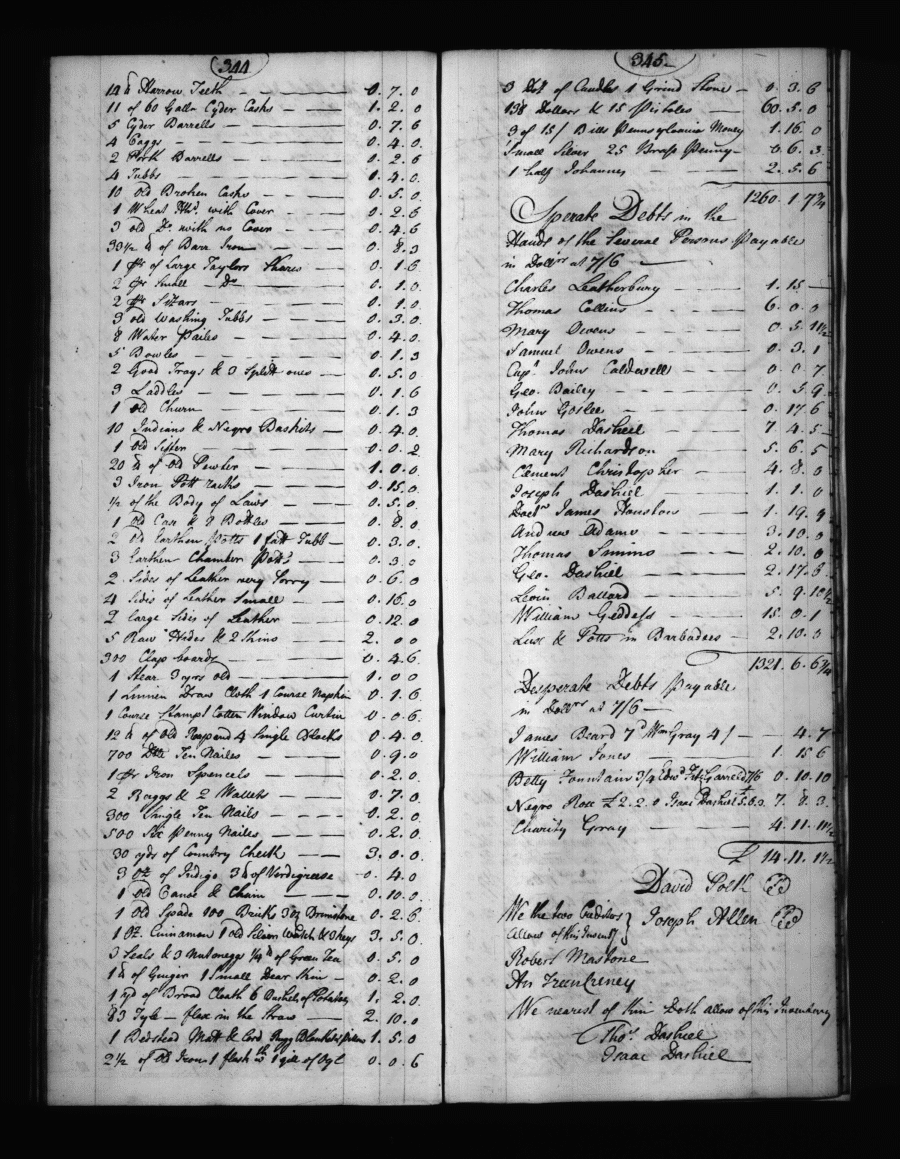 344
14 lb Harrow Teeth — 0.7.0
11 of 60 Galln Cyder Casks — 1.2.0
5 Cyder Barrells — 0.7.6
4 Caggs — 0.4.0
2 Pork Barrells — 0.2.6
4 Tubbs — 1.4.0
10 old Broken Casks — 0.5.0
1 Wheat with Cover — 0.2.6
3 old Do with no Cover — 0.4.6
33½ lb of Barr Iron — 0.8.3
1 pr of Large Taylors Shears — 0.1.6
2 pr Small Do — 0.1.0
2 pr Sizars — 0.1.0
3 old Washing Tubbs — 0.3.0
8 Water Pailes — 0.4.0
5 Bowles — 0.1.3
2 Good Trays & 3 Splitt ones — 0.5.0
3 Laddles — 0.1.6
1 old Churn — 0.1.3
10 Indians & Negro Baskits — 0.4.0
1 Old Sifter — 0.0.2
20 lb of Old Pewter — 1.0.0
3 Iron Pott racks — 0.15.0
½ of the Body of Laws — 0.5.0
1 Old Case & 9 Bottles — 0.8.0
2 Old Earthen Potts 1 fatt Tubb — 0.3.0
3 Earthen Chamber Potts — 0.3.0
2 Sides of Leather very Sorry — 0.6.0
4 Sides of Leather Small — 0.16.0
2 large Sides of Leather — 0.12.0
5 Raw Hides & 2 Skins — 2.00
300 Clap boards — 0.4.6
1 Stear 3 yrs old — 1.00
1 Linnen Draw Cloth 1 Course Napkin 0.1.6
1 Course Stampt Cotten Window Curtin 0.0.6
12 lb of Old Rope and 4 Single Blocks 0.4.0
700 Ten Nailes — 0.9.0
1 pr Iron Spencels — 0.2.0
2 Baggs & 2 Walletts — 0.7.0
300 Single Ten Nails — 0.2.0
500 Six Penny Nailes — 0.2.0
30 yds of Country Cloth — 3.0.0
3 oz of Indigo 3 lb of Verdigrease 0.4.0
1 Old Canoe & Chain — 0.10.0
1 Old Spade 100 Bricks 3 oz Brimstone 0.2.6
1 oz Cinnamon 1 old Silver Watch & 3 keys 3.5.0
3 Seals & 3 Nutmeggs ¼ lb of Green Tea 0.5.0
1 lb of Ginger 1 Small Dear Skin — 0.2.0
1 yd of Broad Cloath 6 Bushels of Potatoes 1.2.0
83 Tyle — flax in the Straw — 2.10.0
1 Bedstead Matt & Cord Rugg Blankets 1.5.0
2½ of Old Iron 1 flask 1 gill of Oyl 0.0.6
345
3 of Candles 1 Grind Stone — 0.3.6
138 Dollars & 15 Pistoles — 60.5.0
3 of 15/ Bills Pennsylvania Money 1.16.0
Small Silver 25 Brass Penny 0.6.3
1 half Johannes — 2.5.6
1260.1.7¾
Sperate Debts in the
Hands of the Several Persons Payable
in Dollrs at 7/6 —
Charles Leatherbury — 1.15 —
Thomas Collins — 6.0.0
Mary Owens — 0.5.11½
Samuel Owens — 0.3.1
Capt. John Caldwell — 0.0.7
Geo. Bailey — 0.5.9
John Goslee — 0.17.6
Thomas Dashiel — 7.4.5
Mary Richardson — 5.6.5
Clement Christopher — 4.8.0
Joseph Dashiel — 1.1.0
Doctr James Houston — 1.19.9
Andrew Adams — 3.10.0
Thomas Simms — 2.10.0
Geo. Dashiel — 2.17.8
Levin Ballard — 5.9.10½
William Geddess — 15.0.1
Lux & Potts in Barbadoes — 2.10.0
1321.6.6¾
Desperate Debts Payable
in Dollrs at 7/6 —
James Beard 7d Wm Gray 4/ — 4.7
William Jones — 1.15 6
Betty Fountain 3/4 Edwd 7/6 0.10.10
Negro Roce £2.2.0 Isaac Dashiel 5.6.3 7.8.3
Charity Gray — 4.11.11½
£ 14.11.1½
David Polk
We the two Creditors
allows of this Inventy } Joseph Allen
Robert Mastone
An
We nearest of Kin Doth allow of this Inventory
Thos. Dashiel
Isaac Dashiel